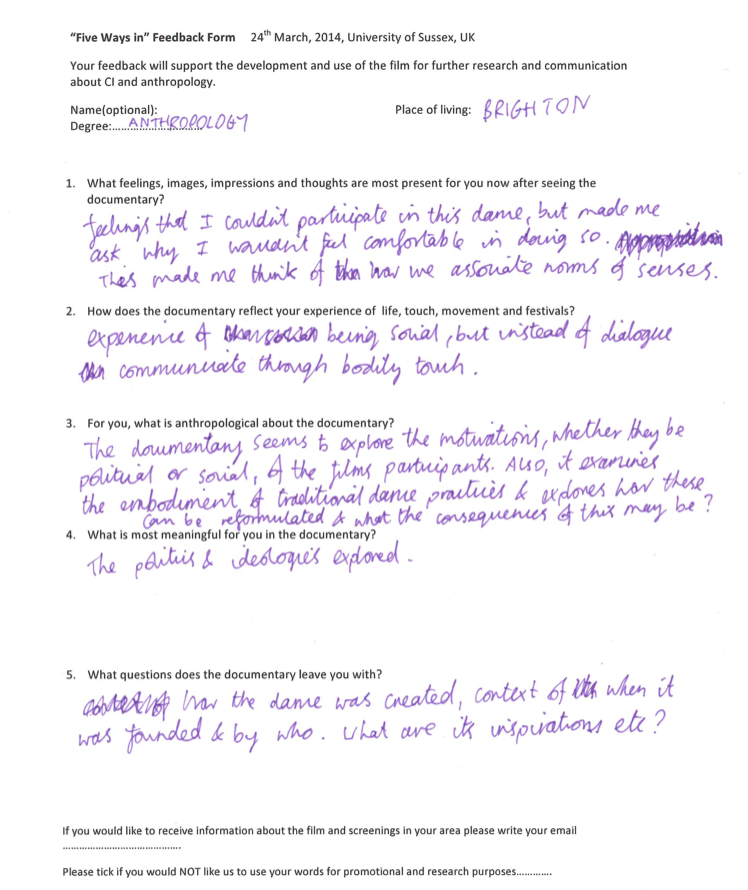 "Five Ways in" Feedback Form 24th March, 2014, University of Sussex, UK
Your feedback will support the development and use of the film for further research and communication
about CI and anthropology.
Name(optional): Place of living: BRIGHTON
Degree:......ANTHROPOLOGY
1. What feelings, images, impressions and thoughts are most present for you now after seeing the
documentary?
feelings that I couldn't participate in this dance, but made me
ask why I wouldn't feel comfortable in doing so.
This made me think of how we associate norms of senses.
2. How does the documentary reflect your experience of life, touch, movement and festivals?
experience of being social, but instead of dialogue
communicate through bodily touch.
3. For you, what is anthropological about the documentary?
The documentary seems to explore the motivations, whether they be
political or social, of the films participants. Also, it examines
the embodiment of traditional dance practices & explores how these
can be reformulated & what the consequences of this may be?
4. What is most meaningful for you in the documentary?
The politics & ideologies explored.
5. What questions does the documentary leave you with?
how the dance was created, context of when it
was founded & by who. What are its inspirations etc?
If you would like to receive information about the film and screenings in your area please write your email
............................................
Please tick if you would NOT like us to use your words for promotional and research purposes.............